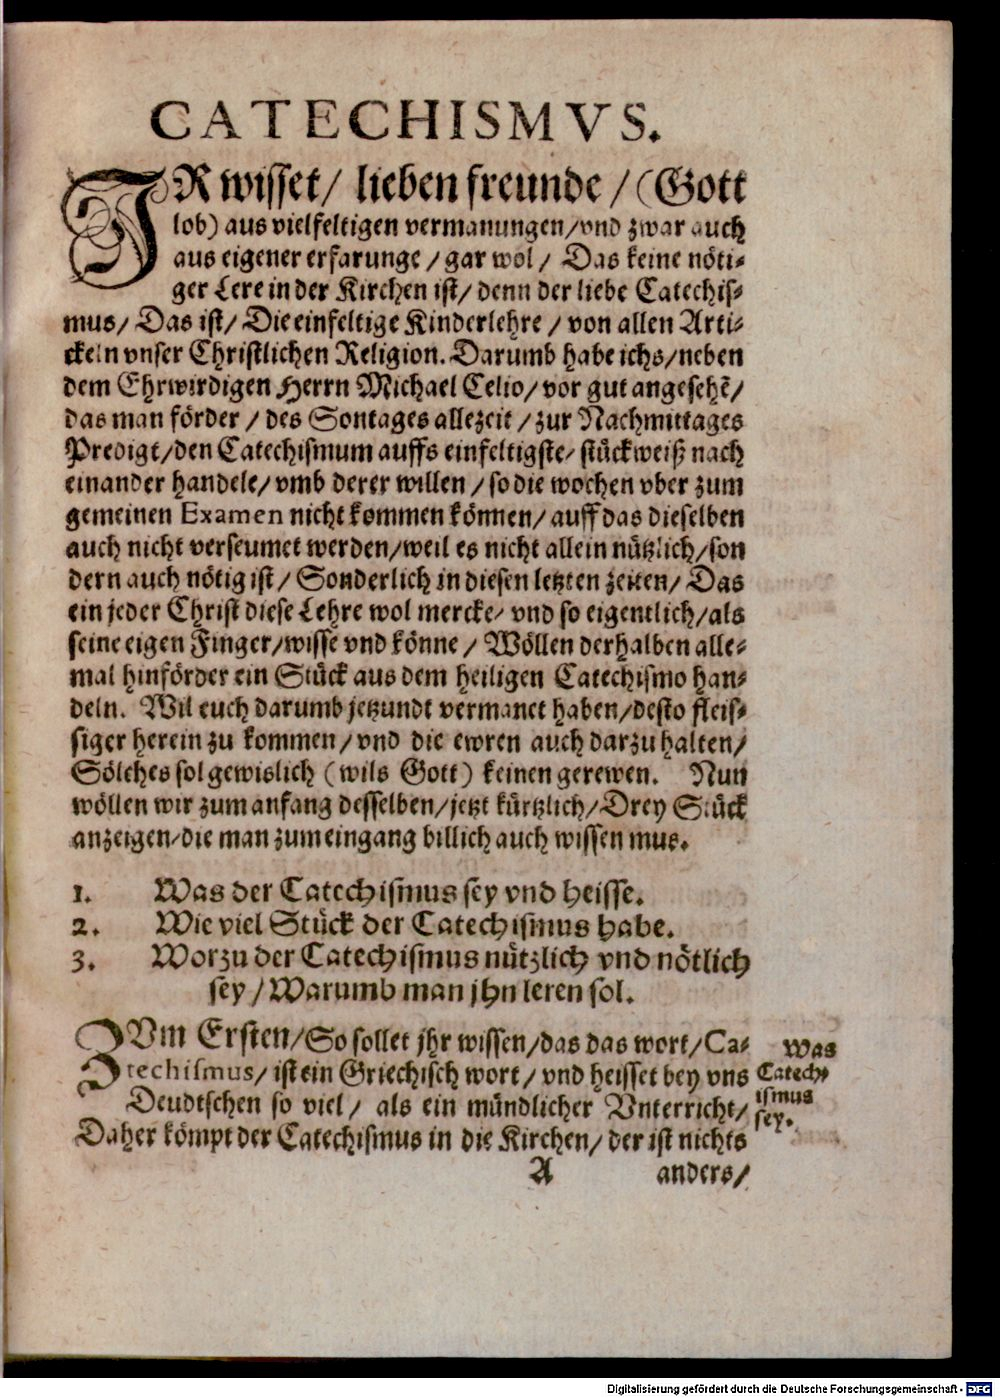 CATECHISMVS.
IR wisset/ lieben freunde/ (Gott
lob) aus vielfeltigen vermanungen/vnd zwar auch
aus eigener erfarunge/gar wol/ Das keine nöti-
ger Lere in der Kirchen ist/ denn der liebe Catechis-
mus/ Das ist/ Die einfeltige Kinderlehre/ von allen Arti-
ckeln vnser Christlichen Religion. Darumb habe ichs/neben
dem Ehrwirdigen Herrn Michael Celio/ vor gut angesehẽ/
das man förder/ des Sontages allezeit/ zur Nachmittages
Predigt/den Catechismum auffs einfeltigste/ stückweiß nach
einander handele/ vmb derer willen/ so die wochen vber zum
gemeinen Examen nicht kommen können/ auff das dieselben
auch nicht verseumet werden/weil es nicht allein nützlich/son
dern auch nötig ist/ Sonderlich in diesen letzten zeiten/ Das
ein jeder Christ diese Lehre wol mercke/ vnd so eigentlich/als
seine eigen Finger/wisse vnd könne/ Wöllen derhalben alle-
mal hinförder ein Stück aus dem heiligen Catechismo han-
deln. Wil euch darumb jetzundt vermanet haben/desto fleis-
siger herein zu kommen/vnd die ewren auch darzu halten/
Sölches sol gewislich (wils Gott) keinen gerewen. Nun
wöllen wir zum anfang desselben/jetzt kürtzlich/Drey Stück
anzeigen/die man zum eingang billich auch wissen mus.
1. Was der Catechismus sey vnd heisse.
2. Wie viel Stück der Catechismus habe.
3. Worzu der Catechismus nützlich vnd nötlich
sey/Warumb man jhn leren sol.
ZVm Ersten/So sollet jhr wissen/das das wort/Ca-
techismus/ ist ein Griechisch wort/ vnd heisset bey vns
Deudtschen so viel/ als ein mündlicher Vnterricht/
Daher kömpt der Catechismus in die Kirchen/ der ist nichts
Was
Catech-
ismus
sey.
A anders/
Digitalisierung gefördert durch die Deutsche Forschungsgemeinschaft - DFG